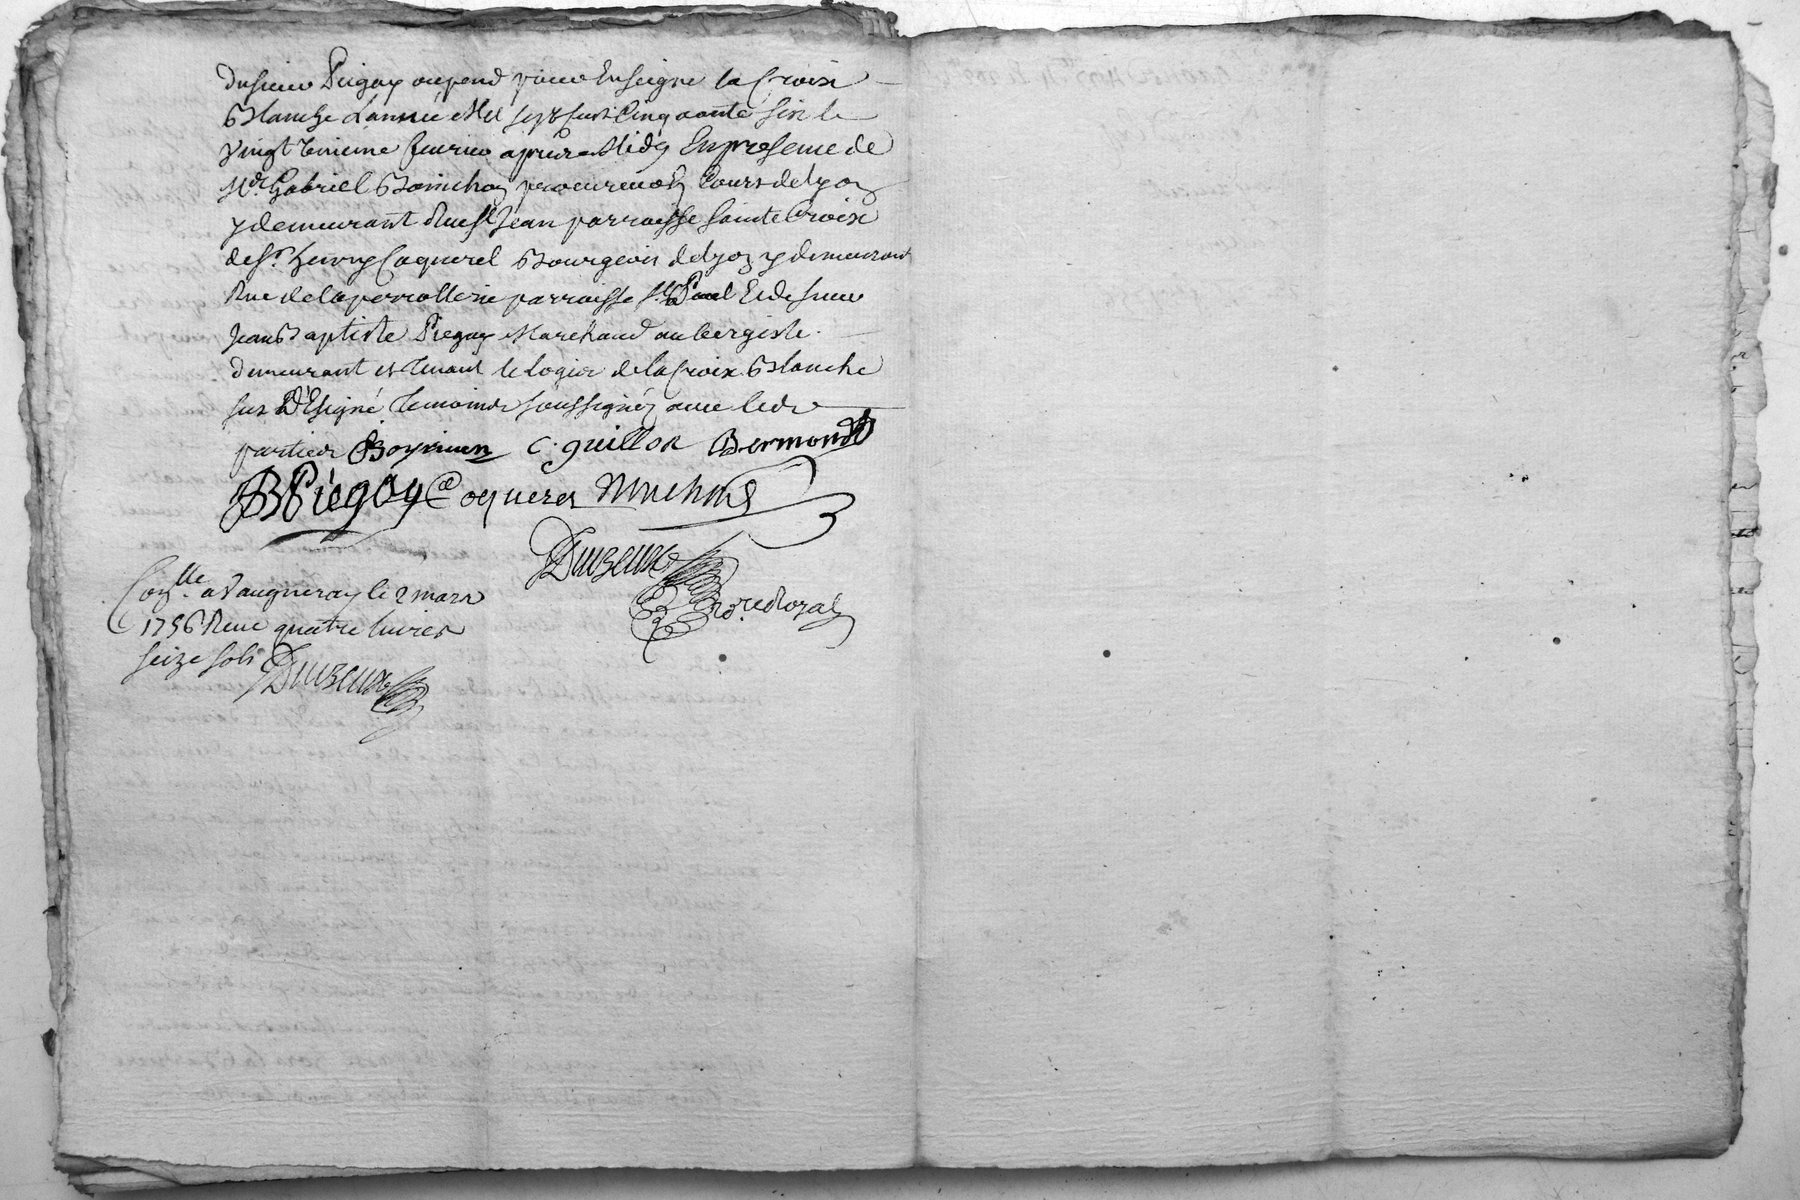 du sieur Piegay ou pend pour Enseigne la Croix
Blanche L'année Mil sept Cent Cinquante six le
vingt Troisieme fevrier apres Midy En presence de
Me. Gabriel procureur Es Cours de Lyon
y demeurant Rue St Jean parroisse Sainte Croix
de Sr. henry Coquerel Bourgeois de Lyon y demeurant
Rue de la perrollerie parroisse St Paul Et de Sieur
Jean Baptiste Piegay Marchand aubergiste
demeurant et tenant le Logis de la Croix Blanche
sus Désigné Temoins soussignés avec lesd
parties C. guillon Bermond
JB Piegay Coquerel
Duvzeux
nore Royal
Conlle. a Vaugneray le 2 mars
1756 Reçu quatre livres
seize sols Duvzeux